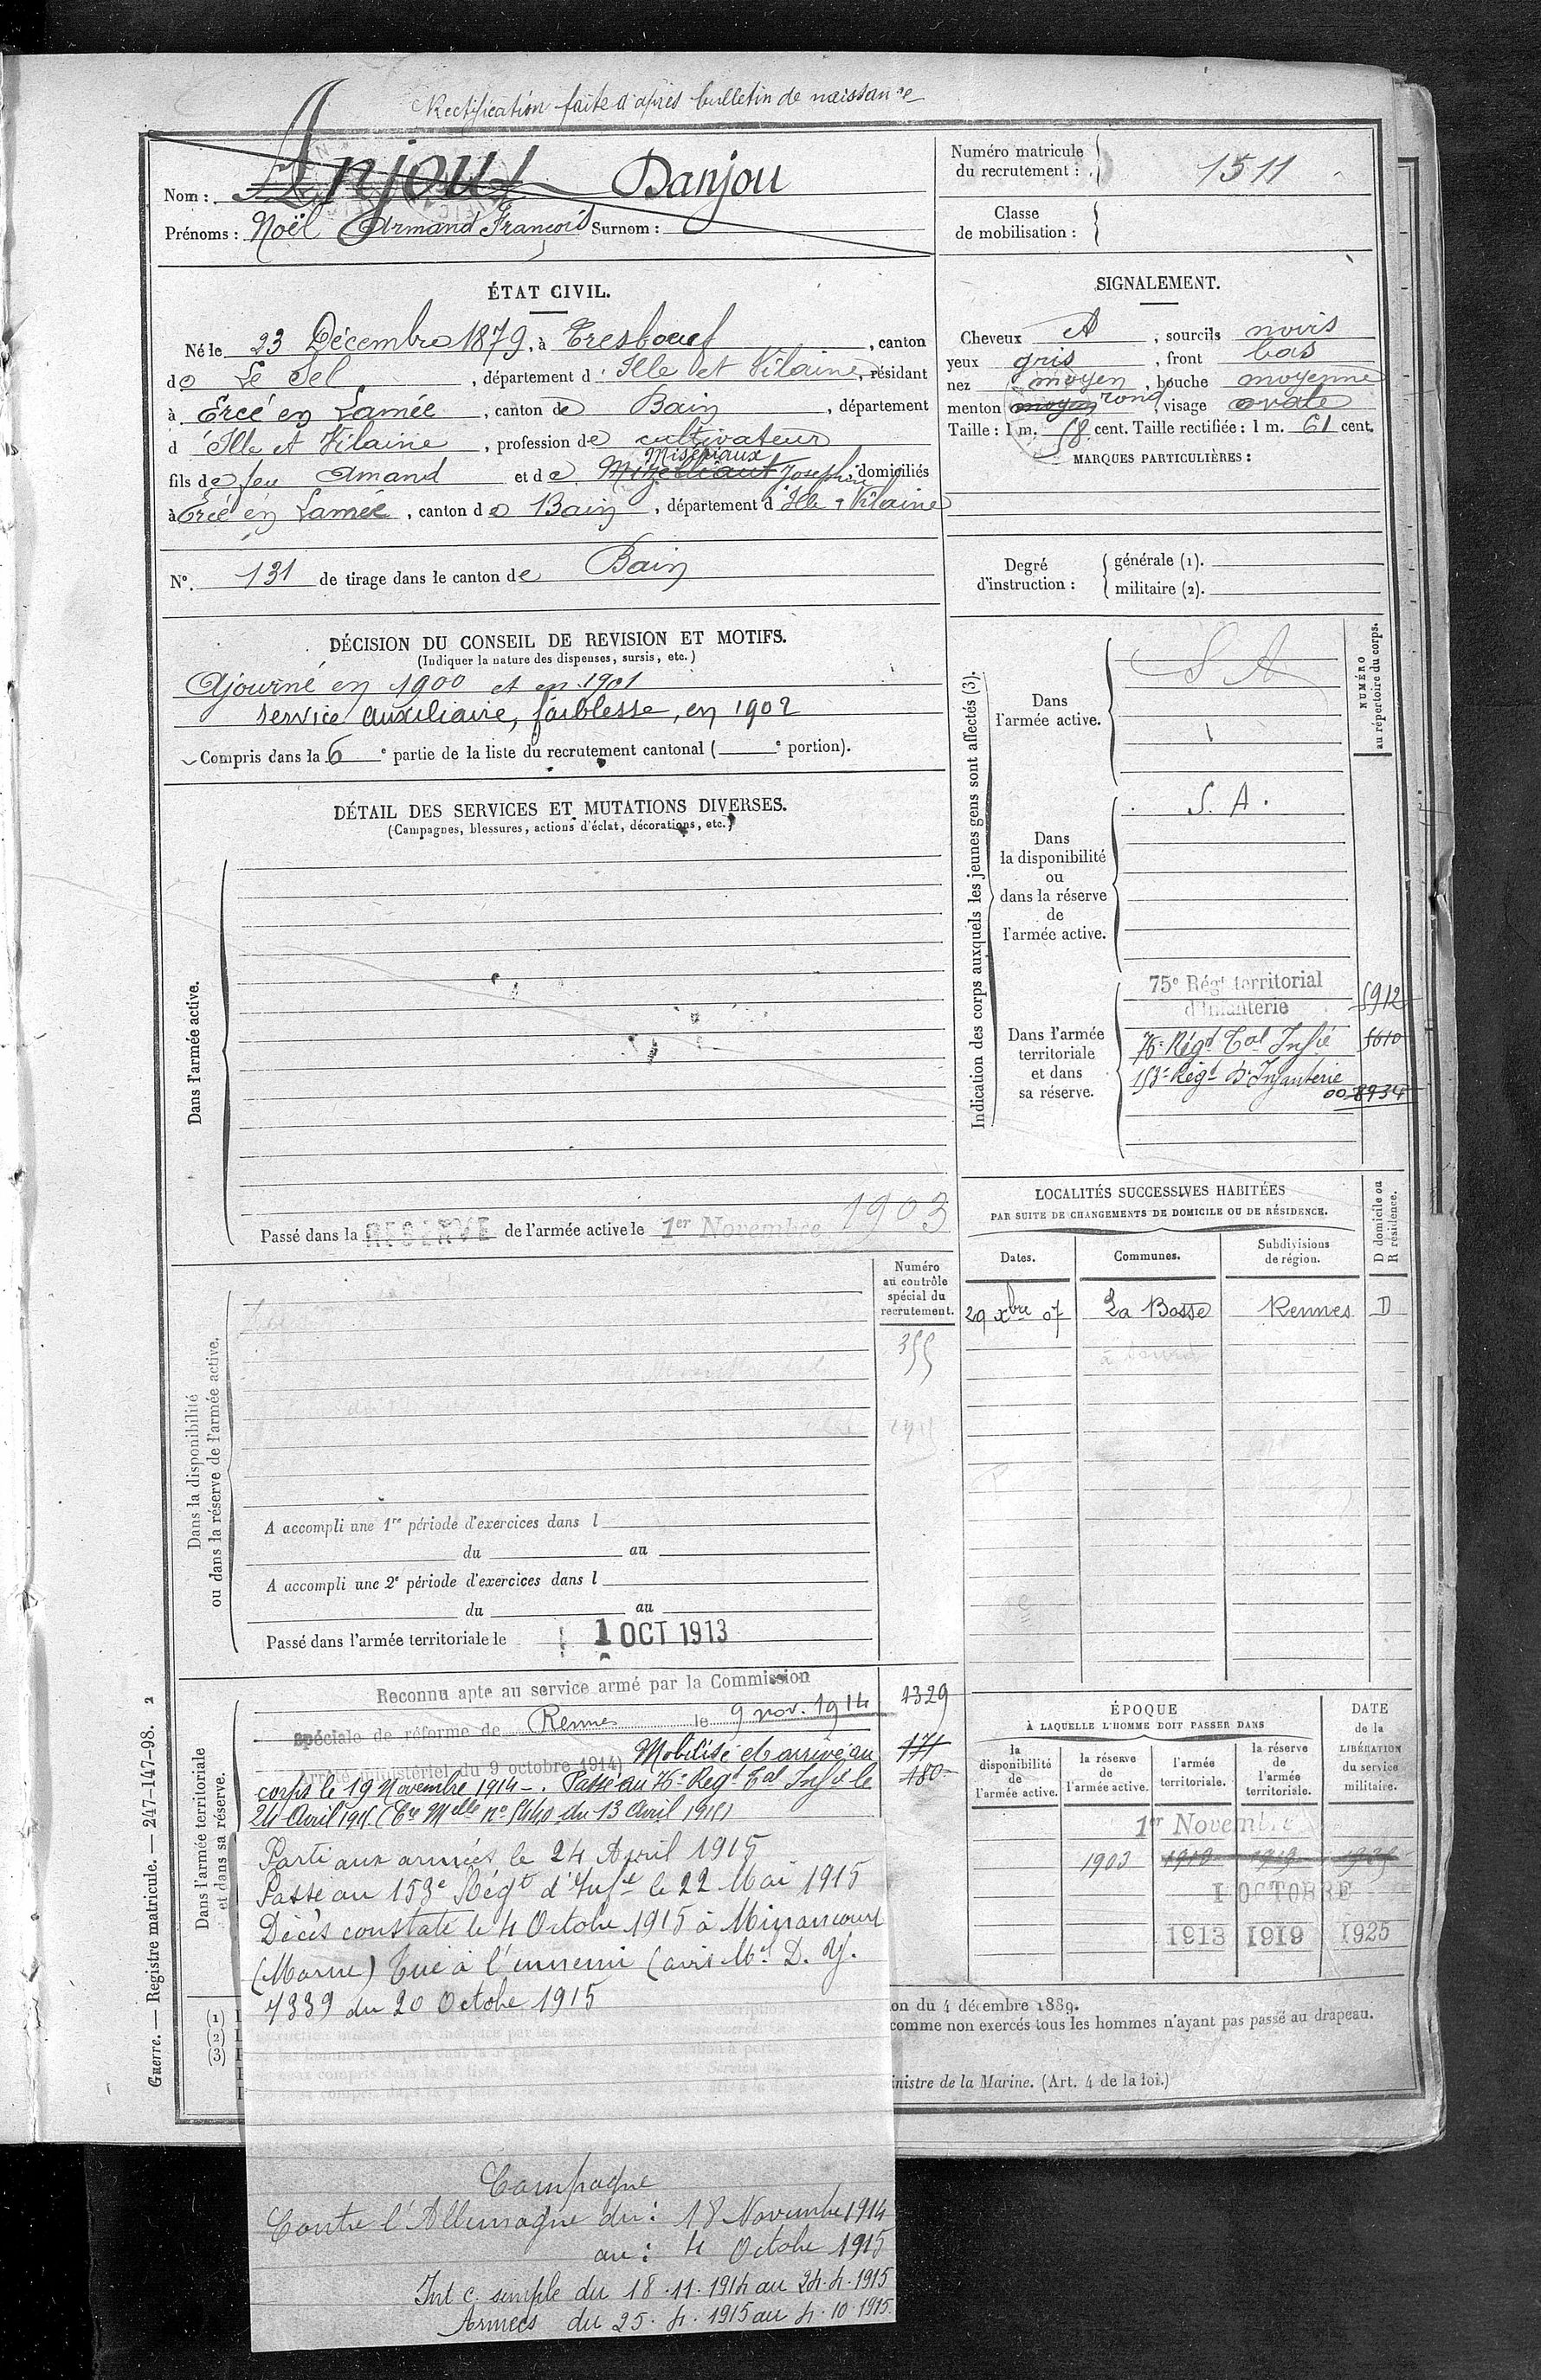 Rectification faite d'après bulletin de naissance
Nom : Anjou Danjou
Prénoms : Noël Armand François Surnom :
Numéro matricule du recrutement : 1511
Classe de mobilisation :
ÉTAT CIVIL.
Né le 23 Décembre 1879, à Tresboeuf, canton
de Le Sel, département d'Ille et Vilaine, résidant
à Ercé en Lamée, canton de Bain, département
d'Ille et Vilaine, profession de cultivateur
Misériaux
fils de feu Amand et de Josephine domiciliés
à Ercé en Lamée, canton de Bain, département d'Ille & Vilaine
N°. 131 de tirage dans le canton de Bain
SIGNALEMENT.
Cheveux , sourcils noirs
yeux gris, front bas
nez moyen, bouche moyenne
menton moyen rond, visage ovale
Taille : 1 m. 58 cent. Taille rectifiée : 1 m. 61 cent.
MARQUES PARTICULIÈRES :
Degré d'instruction : générale (1).
militaire (2).
DÉCISION DU CONSEIL DE REVISION ET MOTIFS.
(Indiquer la nature des dispenses, sursis, etc.)
Ajourné en 1900 et en 1901
service auxiliaire, faiblesse, en 1902
Compris dans la 6e partie de la liste du recrutement cantonal ( e portion).
DÉTAIL DES SERVICES ET MUTATIONS DIVERSES.
(Campagnes, blessures, actions d'éclat, décorations, etc.)
Dans l'armée active.
Passé dans la RESERVE de l'armée active le 1er Novembre 1903
Indication des corps auxquels les jeunes gens sont affectés (3).
NUMÉRO au répertoire du corps.
Dans l'armée active.
S A
Dans la disponibilité ou dans la réserve de l'armée active.
S. A.
Dans l'armée territoriale et dans sa réserve.
75e Régt territorial d'Infanterie 5912
76e Régt Tal Infie 5610
153e Régt d'Infanterie
00 8934
LOCALITÉS SUCCESSIVES HABITÉES
PAR SUITE DE CHANGEMENTS DE DOMICILE OU DE RÉSIDENCE.
Dates. Communes. Subdivisions de région. D domicile ou R résidence.
29 xbre 07 La Bosse Rennes D
Dans la disponibilité ou dans la réserve de l'armée active.
Numéro au contrôle spécial du recrutement.
355
A accompli une 1re période d'exercices dans l
du au
A accompli une 2e période d'exercices dans l
du au
Passé dans l'armée territoriale le 1 OCT 1913
Dans l'armée territoriale et dans sa réserve.
Reconnu apte au service armé par la Commission 1329
spéciale de réforme de Rennes le 9 nov. 1914
(Arrêté ministériel du 9 octobre 1914) Mobilisé et arrivé au 171
corps le 19 Novembre 1914 -. Passé au 76e Régt Tal Infie le 180
24 Avril 1915. (Cre Melle n° 5440 du 13 Avril 1915)
Parti aux armées le 24 Avril 1915
Passé au 153e Régt d'Infie le 22 Mai 1915
Décès constaté le 4 Octobre 1915 à Minaucourt
(Marne) Tué à l'ennemi (avis Mel D. Y.
7339 du 20 Octobre 1915
ÉPOQUE
À LAQUELLE L'HOMME DOIT PASSER DANS
la disponibilité de l'armée active. la réserve de l'armée active. l'armée territoriale. la réserve de l'armée territoriale. DATE de la LIBÉRATION du service militaire.
1er Novembre
1903 1910 1919
1 OCTOBRE
1913 1919 1925
(1)
(2)
(3)
on du 4 décembre 1889.
comme non exercés tous les hommes n'ayant pas passé au drapeau.
inistre de la Marine. (Art. 4 de la loi.)
Guerre. — Registre matricule. — 247-147-98. 2
Campagne
Contre l'Allemagne du : 18 Novembre 1914
au : 4 Octobre 1915
Int c. simple du 18.11.1914 au 24.4.1915
Armées du 25.4.1915 au 4.10.1915